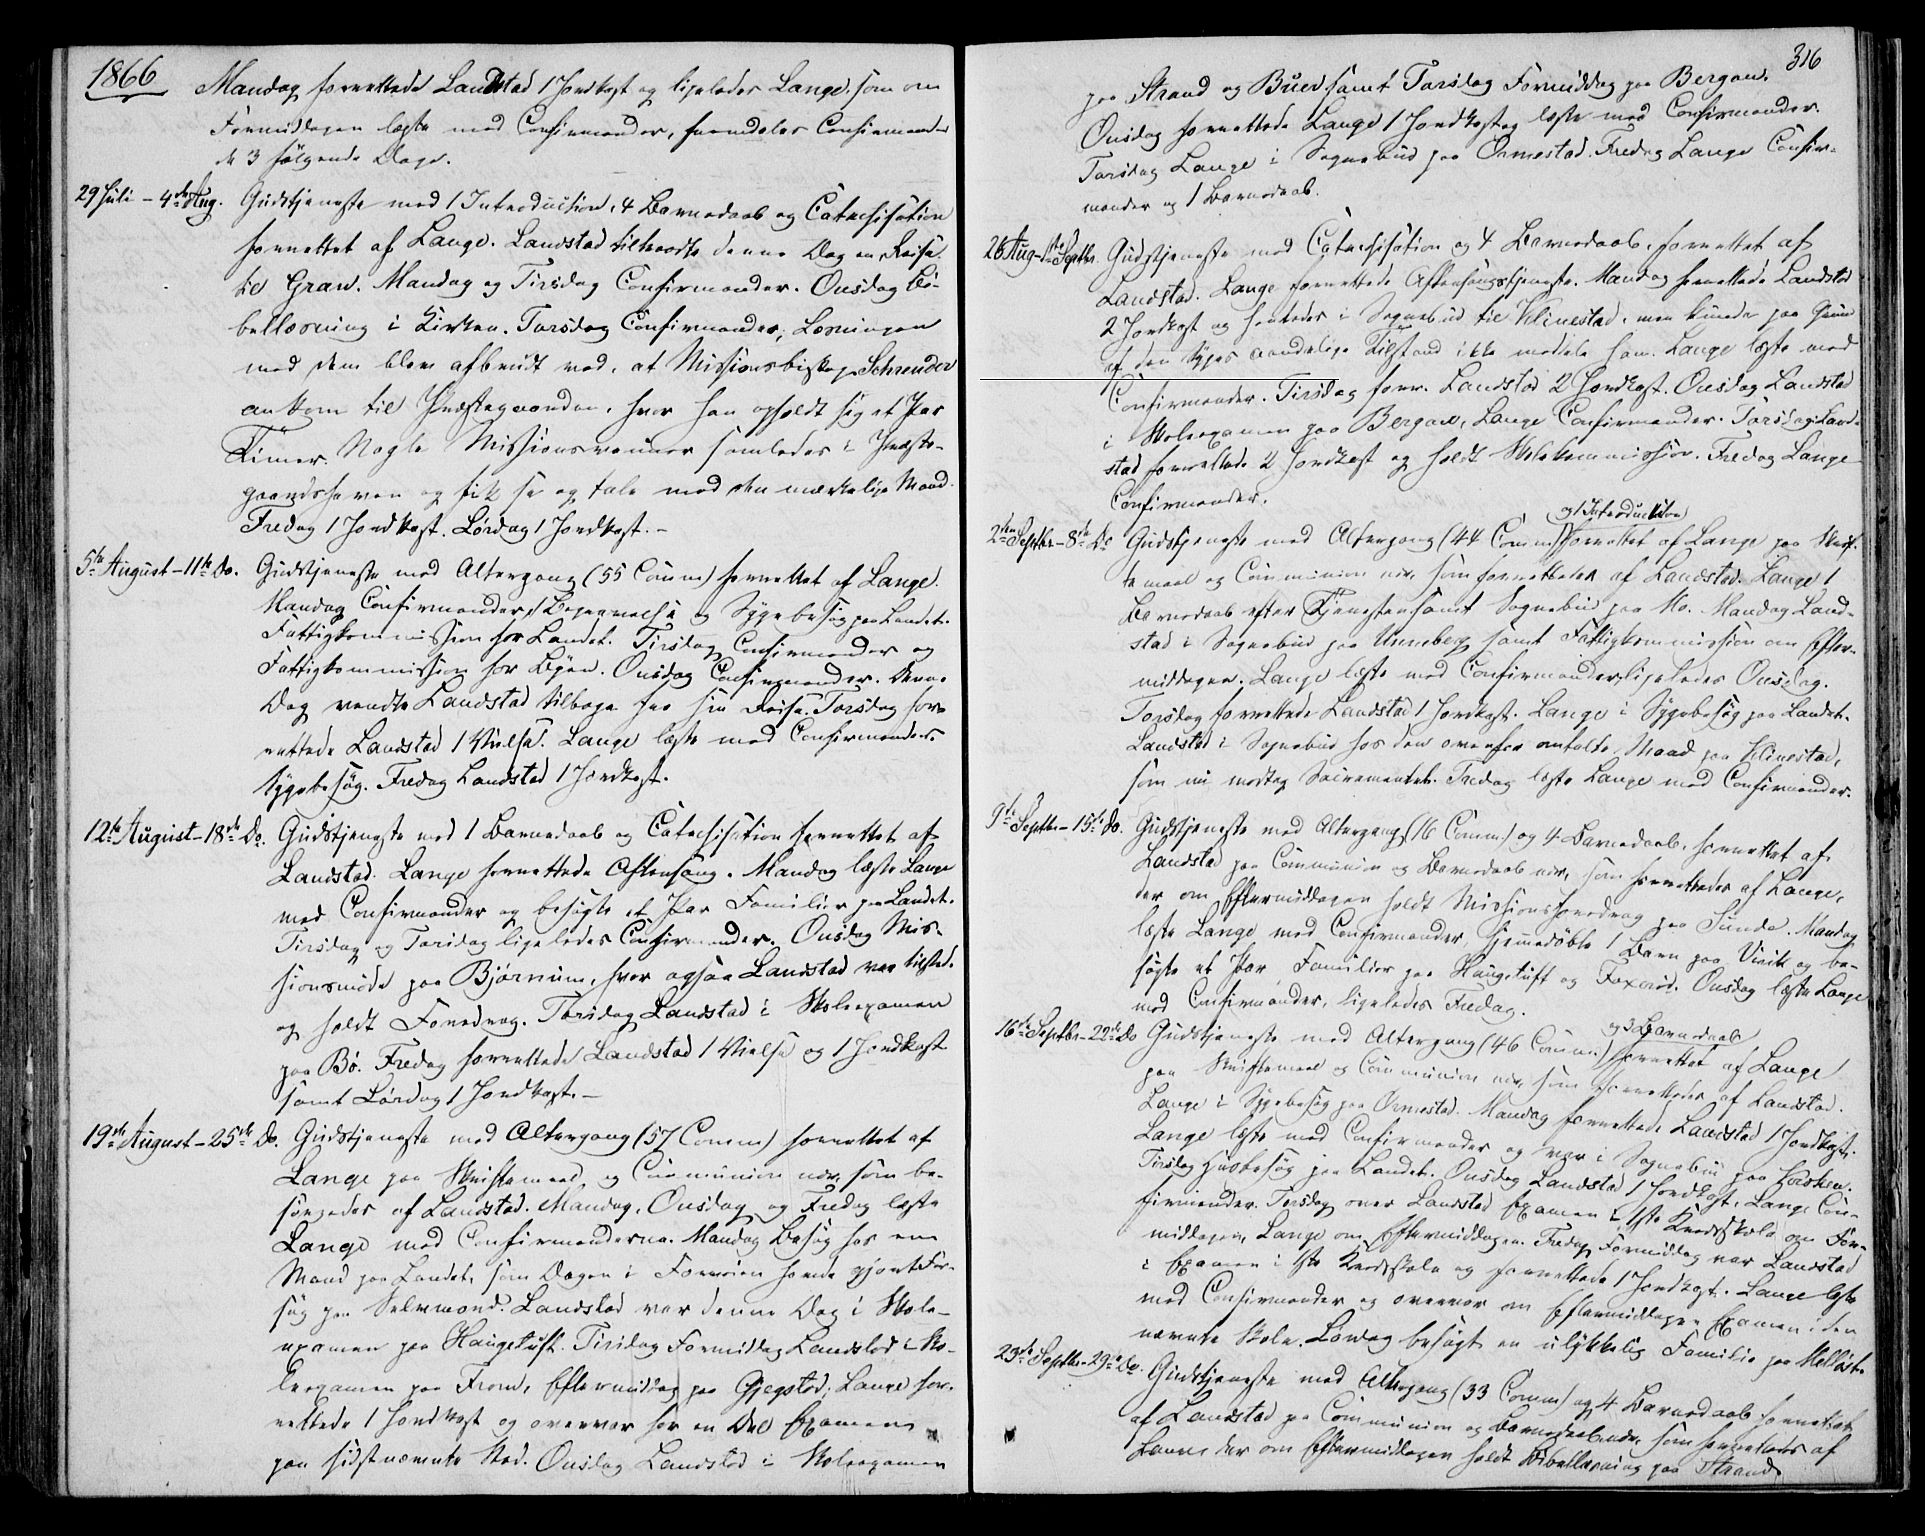 1866
Mandag forrettede Landstad 1 Jordkast og ligeledes Lange, som om
Formiddagen læste med Confirmander, fremdeles Confirmander
de 3 følgende Dage.
29 Juli - 4de Aug. Gudstjeneste med 1 Introduction, 4 Barnedaab og Catechisation
forrettet af Lange. Landstad tiltraadte denne Dag en Reise
til Gran. Mandag og Tirsdag Confirmander. Onsdag Bi-
bellæsning i Kirken. Torsdag Confirmander, Læsningen
med dem blev afbrudt ved, at Missionsbiskop Schreuder
ankom til Præstegaarden, hvor han opholdt sig et Par
Timer. Nogle Missionsvenner samledes i Præste-
gaardshaven og fik se og tale med den mærkelige Mand.
Fredag 1 Jordkast. Lørdag 1 Jordkast. -
5te August - 11te Do. Gudstjeneste med Altergang (55 Comm) forrettet af Lange.
Mandag Confirmander, 1 Begravelse og Sygebesøg paa Landet.
Fattigkommission for Landet. Tirsdag Confirmander og
Fattigkommission for Byen. Onsdag Confirmander. Denne
Dag vendte Landstad tilbage fra sin Reise. Torsdag for-
rettede Landstad 1 Vielse. Lange læste med Confirmander.
Sygebesøg. Fredag Landstad 1 Jordkast.
12te August - 18de Do. Gudstjeneste med 1 Barnedaab og Catechisation forrettet af
Landstad. Lange forrettede Aftensang. Mandag læste Lange
med Confirmander og besøgte et Par Familier paa Landet.
Tirsdag og Torsdag ligeledes Confirmander. Onsdag Mis-
sionsmøde paa Bjørnum, hvor ogsaa Landstad var tilsted.
og holdt Foredrag. Torsdag Landstad i Skoleexamen
paa Bø. Fredag forrettede Landstad 1 Vielse og 1 Jordkast
samt Lørdag 1 Jordkast. -
19de August - 25de Do. Gudstjeneste med Altergang (57 Comm) forrettet af
Lange paa Skriftemaal og Communion nær, som be-
sørgedes af Landstad. Mandag, Onsdag og Fredag læste
Lange med Confirmanderne. Mandag Besøg hos en
Mand paa Landet, som Dagen i Forveien havde gjort For-
søg paa Selvmord. Landstad var denne Dag i Skole-
examen paa Haugetuft. Tirsdag Formiddag Landstad i Sko-
leexamen paa From, Eftermiddag paa Gjegstad; Lange for-
rettede 1 Jordkast og overvar for en Del Examen
paa sidstnævnte Sted. Onsdag Landstad i Skoleexamen
316
paa Strand og Buer samt Torsdag Formiddag paa Bergan.
Onsdag forrettede Lange 1 Jordkast og læste med Confirmander.
Torsdag Lange i Sognebud paa Ormestad. Fredag Lange Confir-
mander og 1 Barnedaab.
26 Aug - 1ste Septbr. Gudstjeneste med Catechisation og 4 Barnedaab, forrettet af
Landstad. Lange forrettede Aftensangstjeneste. Mandag forrettede Landstad
2 Jordkast og hentedes i Sognebud til Klinestad, men kunde paa Grund
af den Syges aandelige Tilstand ikke meddele ham. Lange læste med
Confirmander. Tirsdag forr. Landstad 2 Jordkast. Onsdag Landstad
i Skoleexamen paa Bergan, Lange Confirmander. Torsdag Land-
stad forrettede 2 Jordkast og holdt Skolekommission. Fredag Lange
Confirmander.
og 1 Introduction
2den Septbr - 8de Do Gudstjeneste med Altergang (44 Comm) forrettet af Lange paa Skrif-
temaal og Communion nær, som forrettedes af Landstad. Lange 1
Barnedaab efter Tjenesten samt Sognebud paa Mo. Mandag Land-
stad i Sognebud paa Unneberg samt Fattigkommission om Efter-
middagen. Lange læste med Confirmander, ligeledes Onsdag.
Torsdag forrettede Landstad 1 Jordkast. Lange i Sygebesøg paa Landet.
Landstad i Sognebud hos den ovenfor omtalte Mand paa Klinestad,
som nu modtog Sacramentet. Fredag læste Lange med Confirmander.
9de Septbr - 15de Do. Gudstjeneste med Altergang (16 Comm.) og 4 Barnedaab, forrettet af
Landstad paa Communion og Barnedaab nær, som forrettedes af Lange,
der om Eftermiddagen holdt Missionsforedrag paa Sunde. Mandag
læste Lange med Confirmander, hjemmedøbte 1 Barn paa Virik og be-
søgte et Par Familier paa Haugetuft og Foxerød. Onsdag læste Lange
med Confirmander, ligeledes Fredag.
og 3 Barnedaab
16de Septbr - 22de Do Gudstjeneste med Altergang (46 Comm.) forrettet af Lange
paa Skriftemaal og Communion nær, som forrettedes af Landstad.
Lange i Sygebesøg paa Ormestad. Mandag forrettede Landstad 1 Jordkast.
Lange læste med Confirmander og var i Sognebud paa
Tirsdag Husbesøg paa Landet. Onsdag Landstad 1 Jordkast, Lange Con-
firmander. Torsdag over Landstad Examen i 1ste Kredsskole om For-
middagen, Lange om Eftermiddagen. Fredag Formiddag var Landstad
i Examen i 1ste Kredsskole og forrettede 1 Jordkast. Lange læste
med Confirmander og overvar om Eftermiddagen Examen i den
nævnte Skole. Lørdag besøgt en ulykkelig Familie paa
23de Septbr - 29de Do. Gudstjeneste med Altergang (33 Comm) og 4 Barnedaab forrettet
af Landstad paa Communion og Barnedaab nær, som forrettedes af
Lange, der om Eftermiddagen holdt Bibellæsning paa Strand